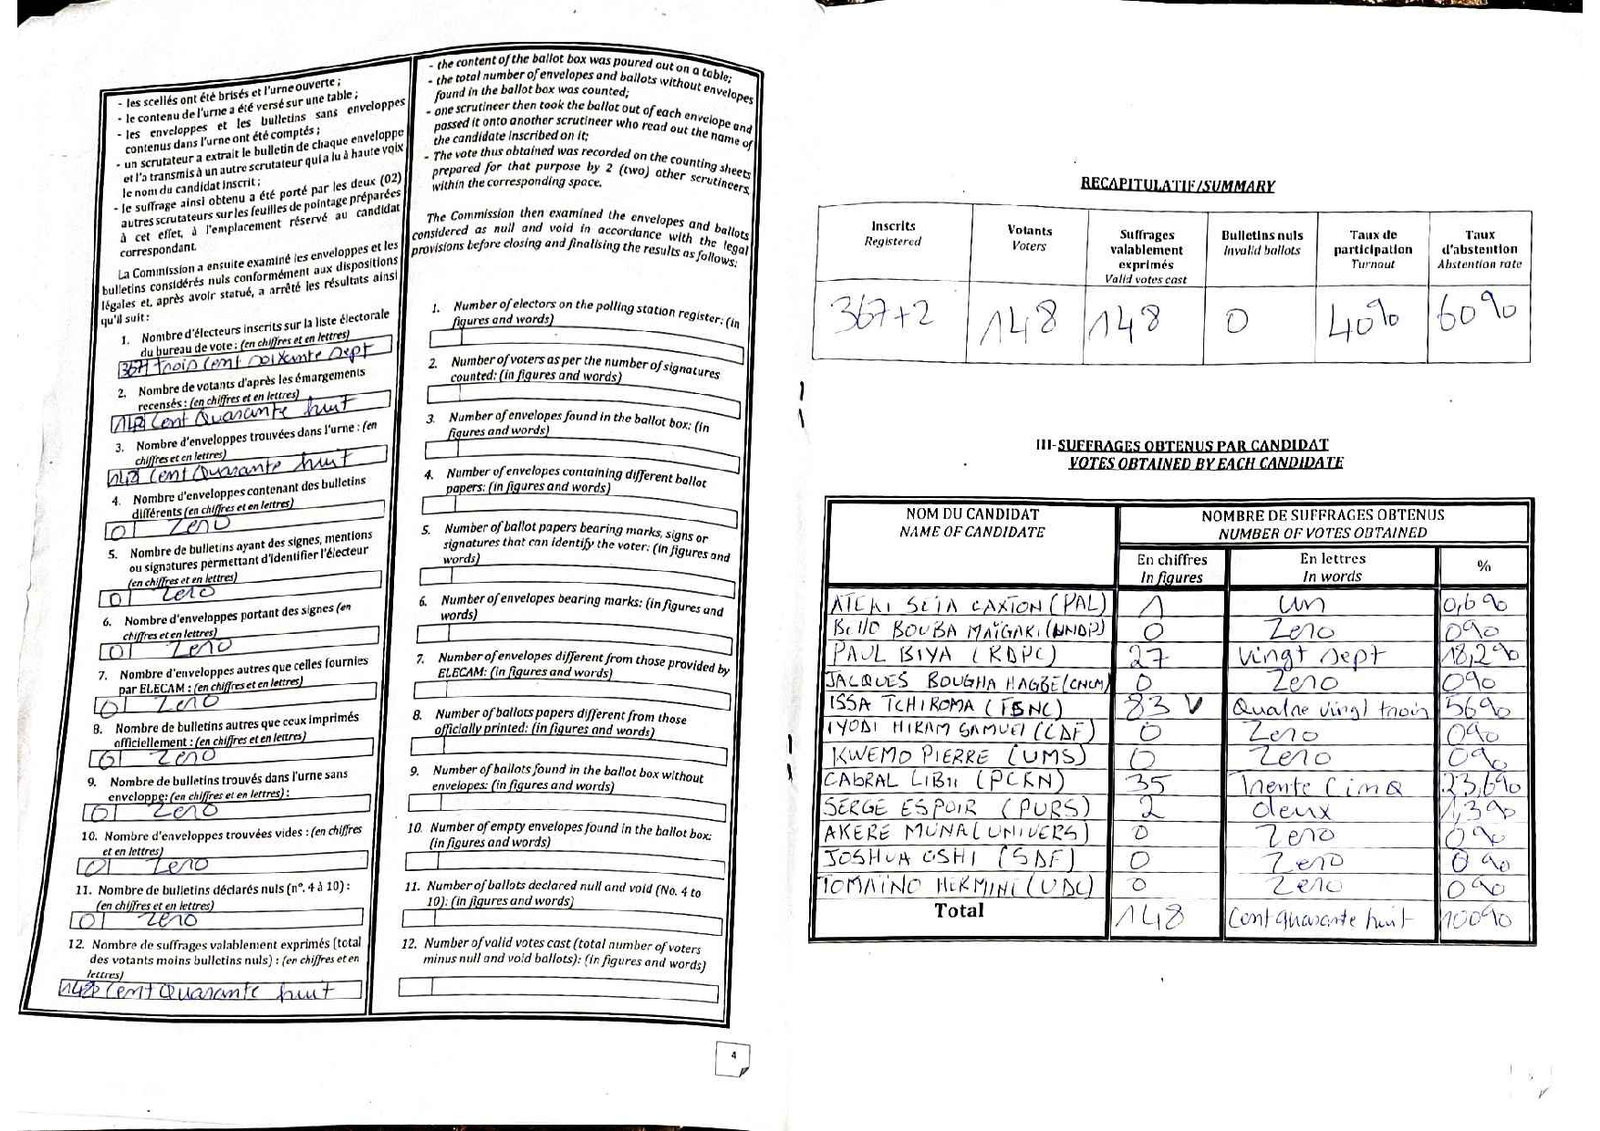 - les scellés ont été brisés et l'urne ouverte ;
- le contenu de l'urne a été versé sur une table ;
- les enveloppes et les bulletins sans enveloppes
contenus dans l'urne ont été comptés ;
- un scrutateur a extrait le bulletin de chaque enveloppe
et l'a transmis à un autre scrutateur qui l'a lu à haute voix
le nom du candidat inscrit ;
- le suffrage ainsi obtenu a été porté par les deux (02)
autres scrutateurs sur les feuilles de pointage préparées
à cet effet, à l'emplacement réservé au candidat
correspondant.
La Commission a ensuite examiné les enveloppes et les
bulletins considérés nuls conformément aux dispositions
légales et, après avoir statué, a arrêté les résultats ainsi
qu'il suit :
1. Nombre d'électeurs inscrits sur la liste électorale
du bureau de vote : (en chiffres et en lettres)
367 trois cent soixante sept
2. Nombre de votants d'après les émargements
recensés : (en chiffres et en lettres)
148 Cent Quarante huit
3. Nombre d'enveloppes trouvées dans l'urne : (en
chiffres et en lettres)
148 Cent Quarante huit
4. Nombre d'enveloppes contenant des bulletins
différents (en chiffres et en lettres)
0 Zero
5. Nombre de bulletins ayant des signes, mentions
ou signatures permettant d'identifier l'électeur
(en chiffres et en lettres)
0 Zero
6. Nombre d'enveloppes portant des signes (en
chiffres et en lettres)
0 Zero
7. Nombre d'enveloppes autres que celles fournies
par ELECAM : (en chiffres et en lettres)
0 Zero
8. Nombre de bulletins autres que ceux imprimés
officiellement : (en chiffres et en lettres)
0 Zero
9. Nombre de bulletins trouvés dans l'urne sans
enveloppe: (en chiffres et en lettres) :
0 Zero
10. Nombre d'enveloppes trouvées vides : (en chiffres
et en lettres)
0 Zero
11. Nombre de bulletins déclarés nuls (n°. 4 à 10) :
(en chiffres et en lettres)
0 Zero
12. Nombre de suffrages valablement exprimés (total
des votants moins bulletins nuls) : (en chiffres et en
lettres)
148 Cent Quarante huit
- the content of the ballot box was poured out on a table;
- the total number of envelopes and ballots without envelopes
found in the ballot box was counted;
- one scrutineer then took the ballot out of each envelope and
passed it onto another scrutineer who read out the name of
the candidate inscribed on it;
- The vote thus obtained was recorded on the counting sheets
prepared for that purpose by 2 (two) other scrutineers,
within the corresponding space.
The Commission then examined the envelopes and ballots
considered as null and void in accordance with the legal
provisions before closing and finalising the results as follows:
1. Number of electors on the polling station register: (in
figures and words)
2. Number of voters as per the number of signatures
counted: (in figures and words)
3. Number of envelopes found in the ballot box: (in
figures and words)
4. Number of envelopes containing different ballot
papers: (in figures and words)
5. Number of ballot papers bearing marks, signs or
signatures that can identify the voter: (in figures and
words)
6. Number of envelopes bearing marks: (in figures and
words)
7. Number of envelopes different from those provided by
ELECAM: (in figures and words)
8. Number of ballots papers different from those
officially printed: (in figures and words)
9. Number of ballots found in the ballot box without
envelopes: (in figures and words)
10. Number of empty envelopes found in the ballot box:
(in figures and words)
11. Number of ballots declared null and void (No. 4 to
10): (in figures and words)
12. Number of valid votes cast (total number of voters
minus null and void ballots): (in figures and words)
4
RECAPITULATIF/SUMMARY
Inscrits Registered
Votants Voters
Suffrages valablement exprimés Valid votes cast
Bulletins nuls Invalid ballots
Taux de participation Turnout
Taux d'abstention Abstention rate
367+2 148 148 0 40% 60%
III-SUFFRAGES OBTENUS PAR CANDIDAT
VOTES OBTAINED BY EACH CANDIDATE
NOM DU CANDIDAT NOMBRE DE SUFFRAGES OBTENUS
NAME OF CANDIDATE NUMBER OF VOTES OBTAINED
En chiffres En lettres %
In figures In words
ATEKI SETA CAXTON (PAL) 1 un 0,6%
BELLO BOUBA MAÏGARI (UNDP) 0 Zero 0%
PAUL BIYA (RDPC) 27 vingt sept 18,2%
JACQUES BOUGHA HAGBE (CNCM) 0 Zero 0%
ISSA TCHIROMA (FSNC) 83 Quatre vingt trois 56%
IYODI HIRAM SAMUEL (CDF) 0 Zero 0%
KWEMO PIERRE (UMS) 0 Zero 0%
CABRAL LIBII (PCRN) 35 Trente Cinq 23,6%
SERGE ESPOIR (PURS) 2 deux 1,3%
AKERE MUNA (UNIVERS) 0 Zero 0%
JOSHUA OSHI (SDF) 0 Zero 0%
TOMAÏNO HERMINE (UDC) 0 Zero 0%
Total 148 Cent quarante huit 100%